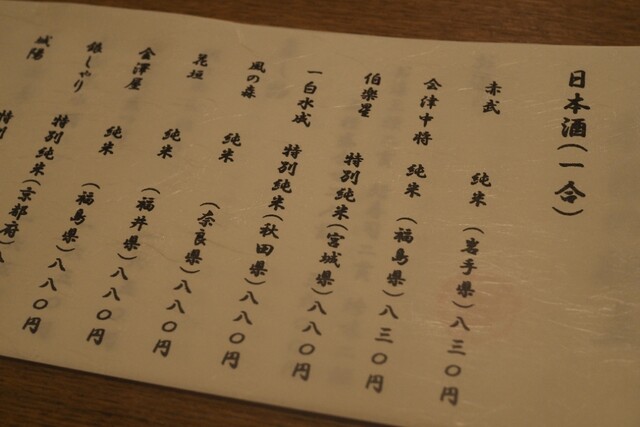 日本酒(一合)
赤武 純米 (岩手県)八三〇円
会津中将 純米 (福島県)八三〇円
伯楽星 特別純米(宮城県)八八〇円
一白水成 特別純米(秋田県)八八〇円
風の森 純米 (奈良県)八八〇円
花垣 純米 (福井県)八八〇円
金澤屋 純米 (福島県)八八〇円
特別純米(京都府)八
城陽 特別